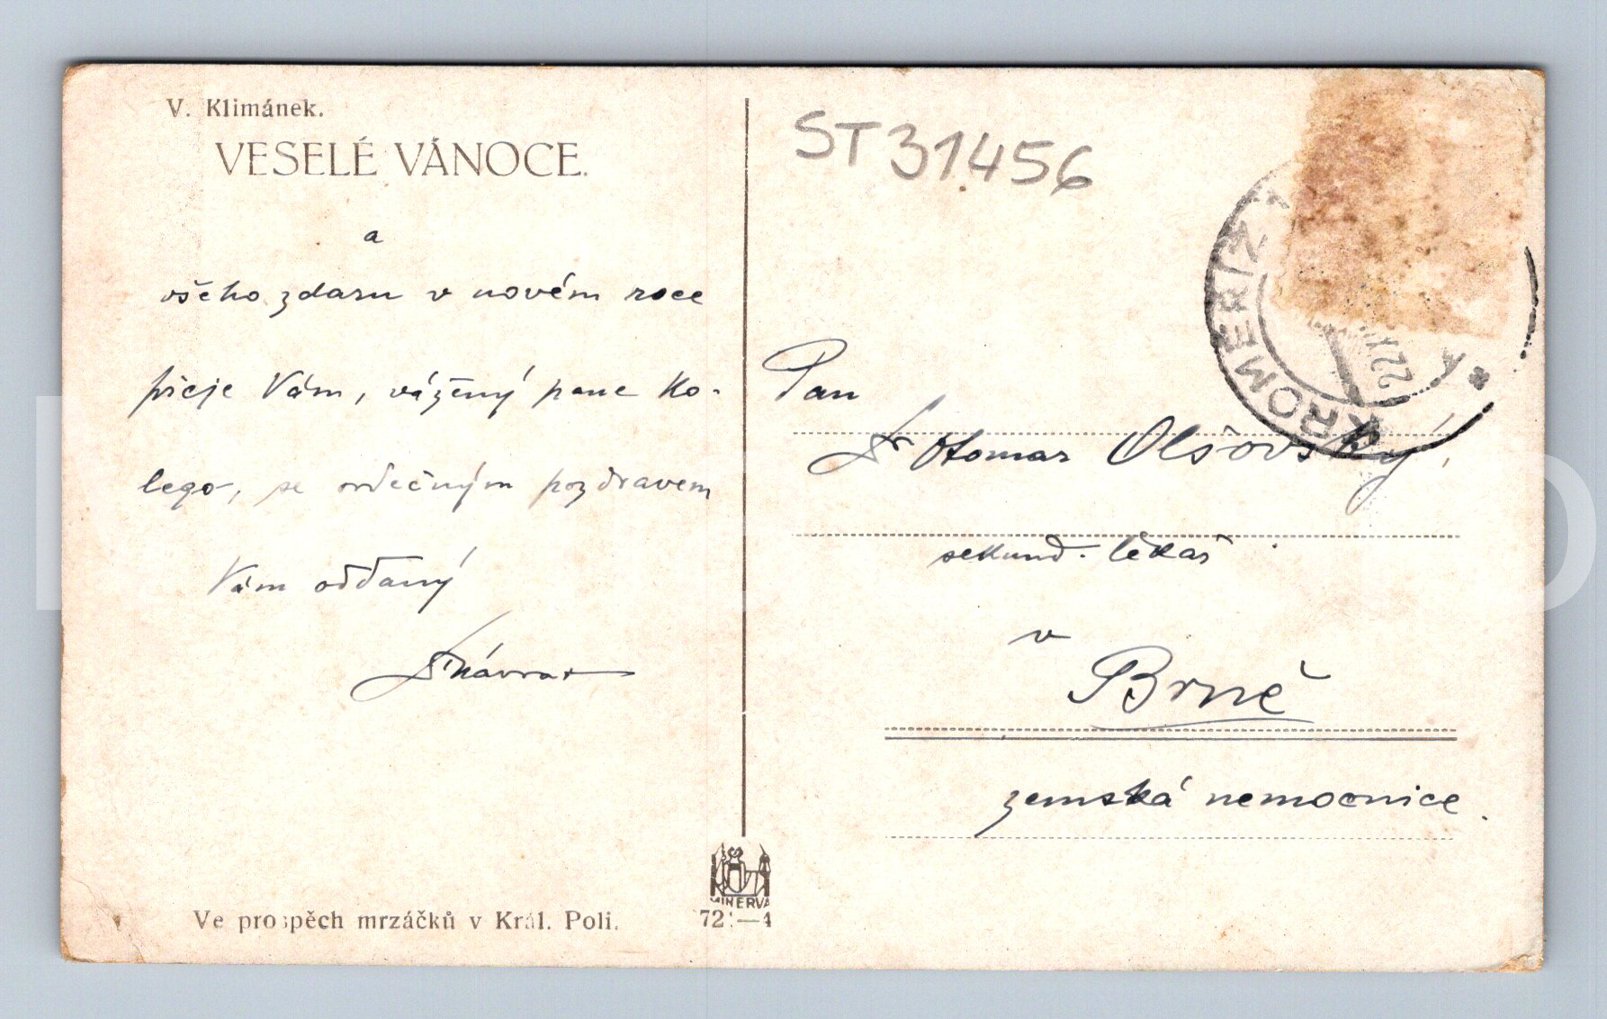 V. Klimánek.
VESELÉ VÁNOCE.
a
všeho zdaru v novém roce
přeje Vám, vážený pane ko-
lego, se srdečným pozdravem
Vám oddaný
DrNávrat
Ve prospěch mrzáčků v Král. Poli.
MINERVA
ST31456
KROMĚŘÍŽ
22.XII
A
Pan
Dr Otomar Olšovský,
sekund. lékař
v
Brně
zemská nemocnice.